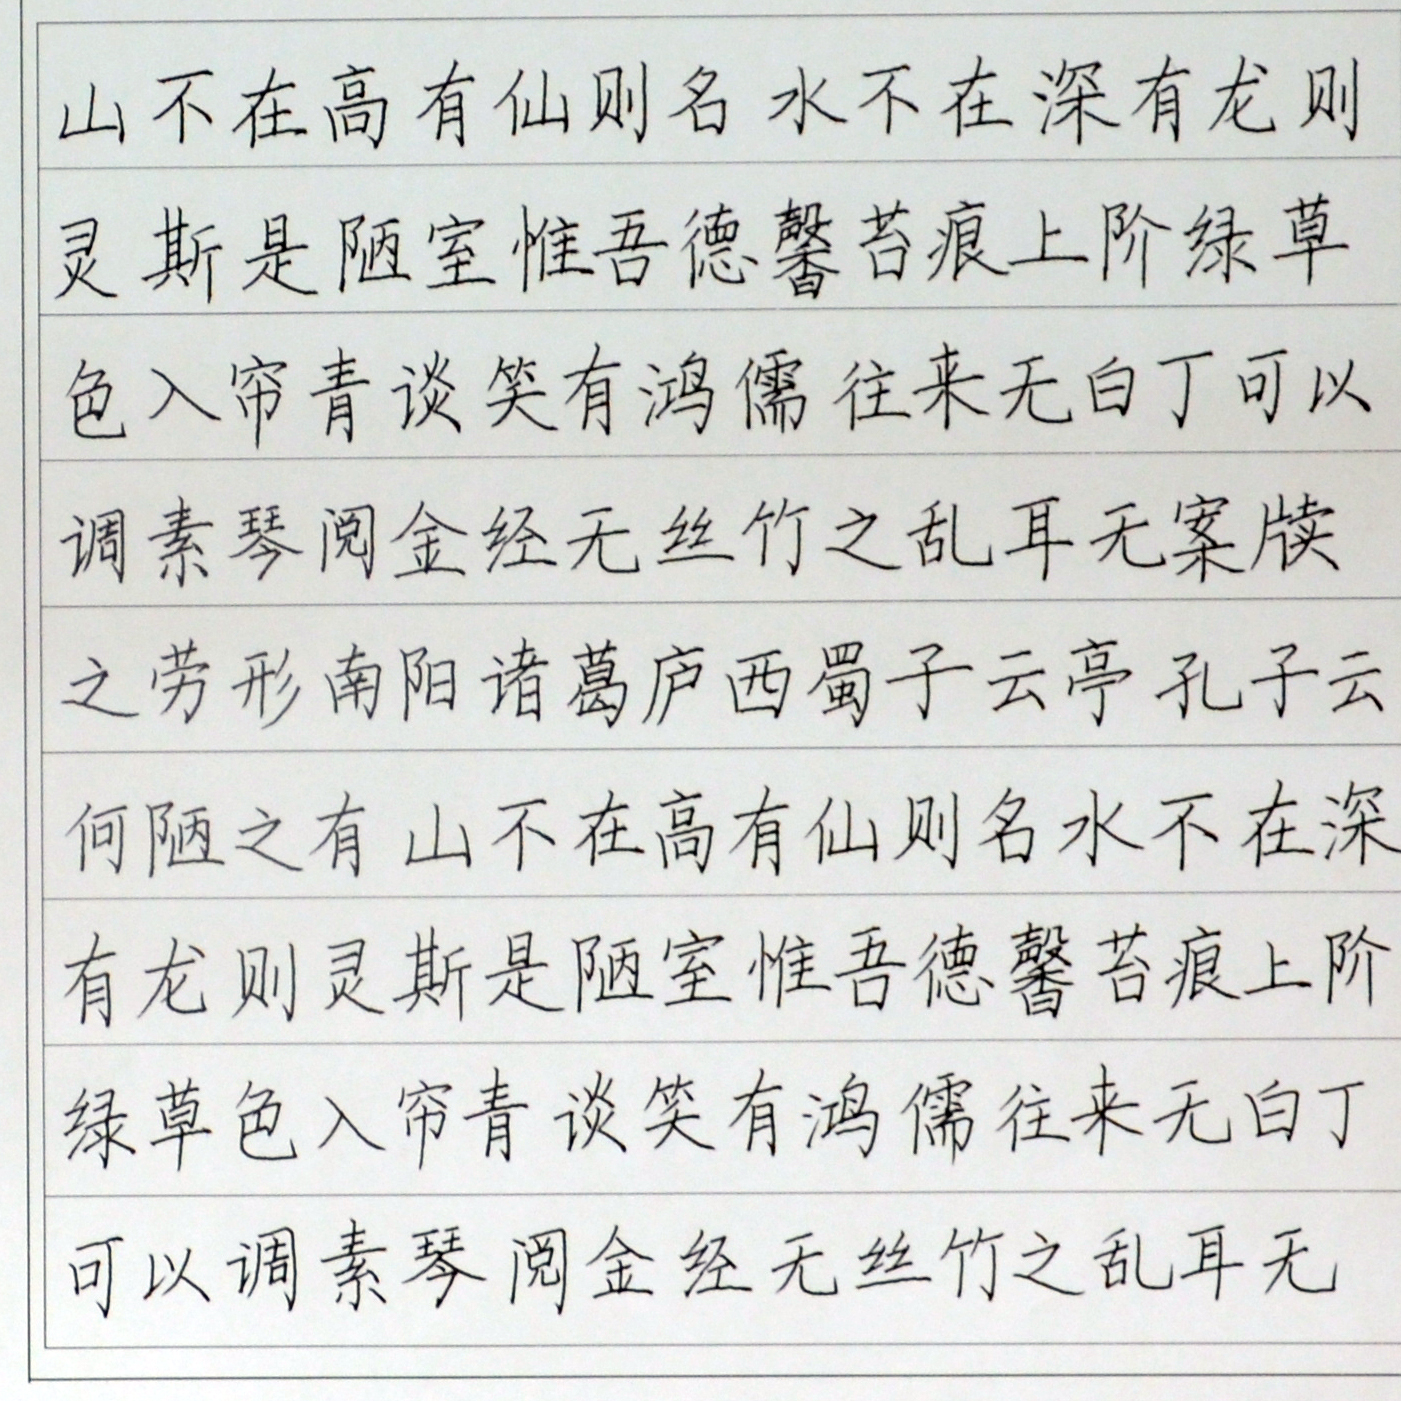 山不在高有仙则名水不在深有龙则
灵斯是陋室惟吾德馨苔痕上阶绿草
色入帘青谈笑有鸿儒往来无白丁可以
调素琴阅金经无丝竹之乱耳无案牍
之劳形南阳诸葛庐西蜀子云亭孔子云
何陋之有山不在高有仙则名水不在深
有龙则灵斯是陋室惟吾德馨苔痕上阶
绿草色入帘青谈笑有鸿儒往来无白丁
可以调素琴阅金经无丝竹之乱耳无